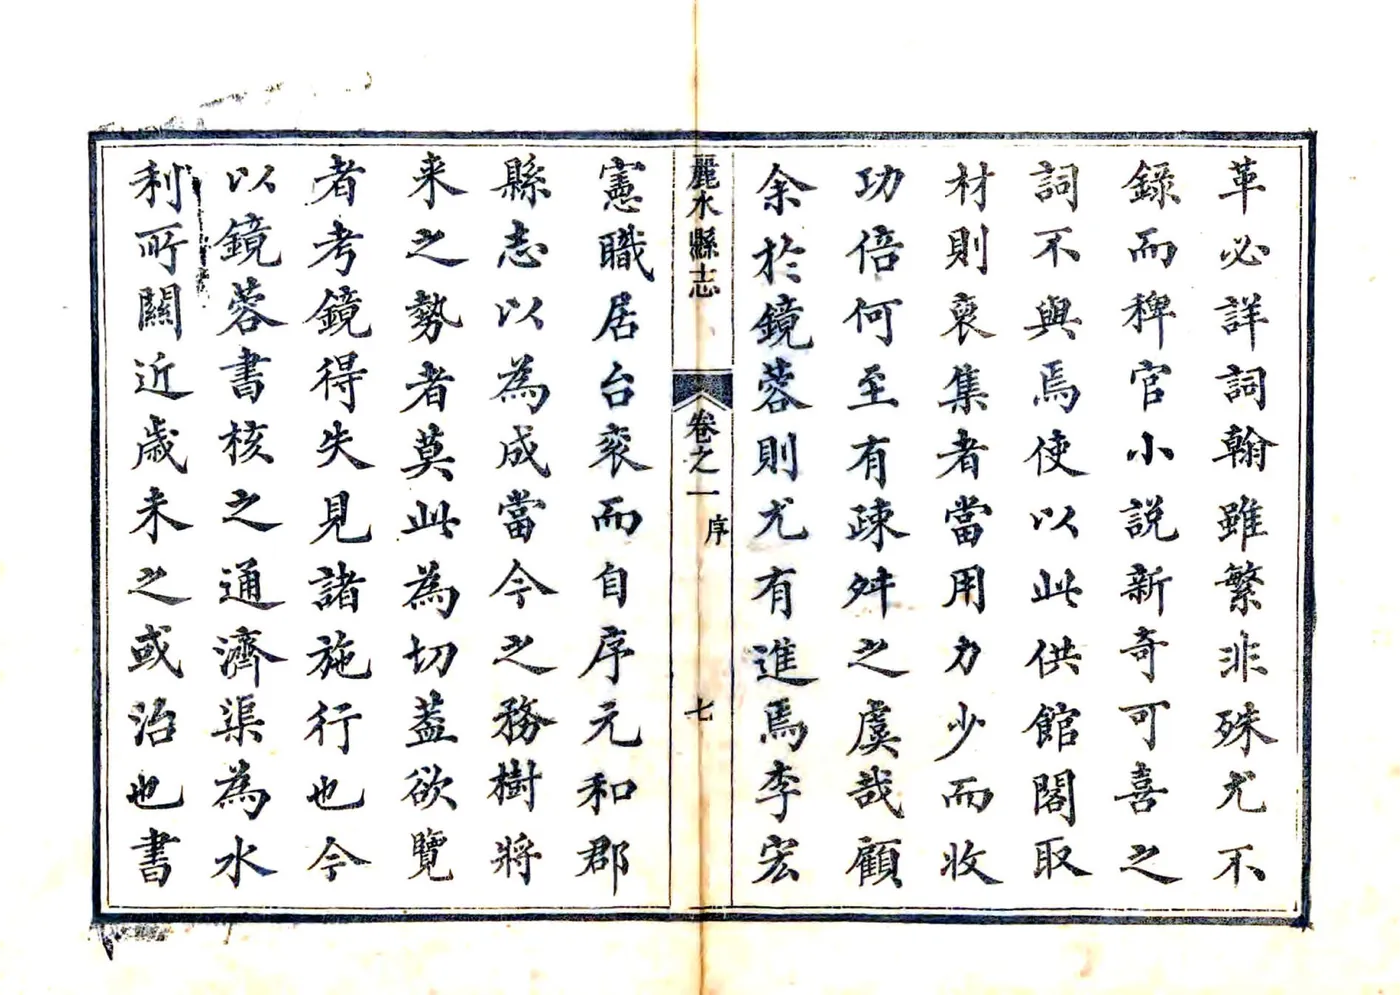 革必詳詞翰雖繁非殊尤不
錄而稗官小説新奇可喜之
詞不與焉使以此供館閣取
材則裒集者當用力少而收
功倍何至有疎舛之虞哉顧
余於鏡蓉則尤有進焉李宏
麗水縣志
卷之一
序
七
憲職居台衮而自序元和郡
縣志以為成當今之務樹將
来之勢者莫此為切蓋欲覽
者考鏡得失見諸施行也今
以鏡蓉書核之通濟渠為水
利所關近歲未之或治也書